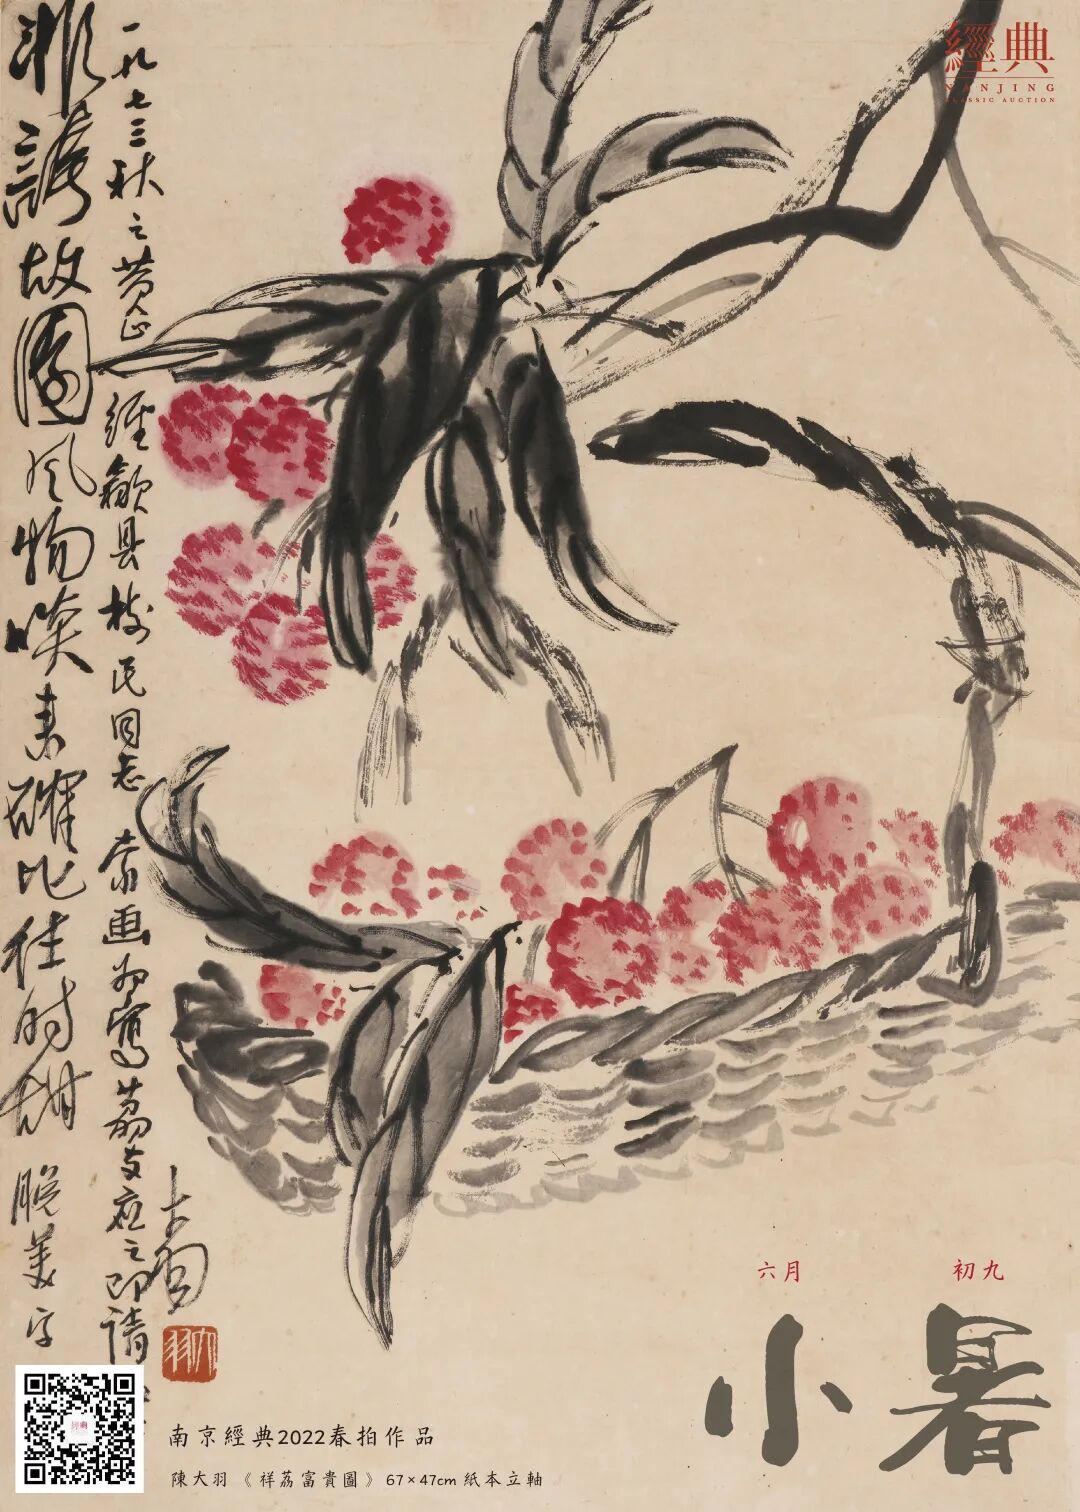 經典
NANJING
CLASSIC AUCTION
非誇故園風物啖来確比往时甜 脱美字
一九七三秋之黄山 經歙县 民同志 索画为寫荔支应之即请
大羽
大羽
六月
初九
小暑
南京經典2022春拍作品
陳大羽《祥荔富貴圖》67×47cm 紙本立軸